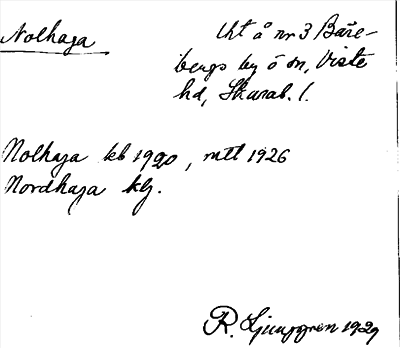 Nolhaga
Uht å nr 3 Båre-
bergs by ö sn, Viste
hd, Skarab. l.
Nolhaga kb 1920, mtl 1926
Nordhaga klg.
R. Ljunggren 1929